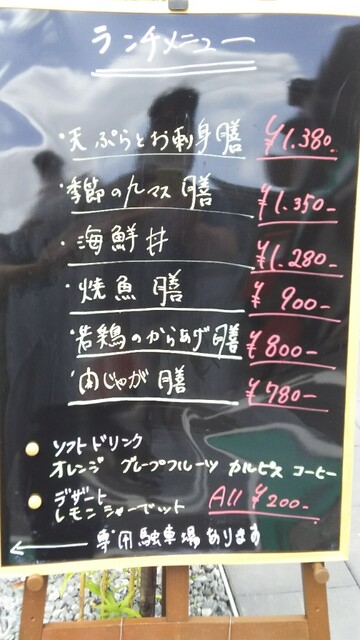 ランチメニュー
・天ぷらとお刺身膳 ¥1.380.
・季節の九マス膳 ¥1.350-
・海鮮丼 ¥1.280-
・焼魚膳 ¥900-
・若鶏のからあげ膳 ¥800-
・肉じゃが膳 ¥780-
ソフトドリンク
オレンジ グレープフルーツ カルピス コーヒー
デザート
レモンシャーベット All ¥200-
← 専用駐車場あります